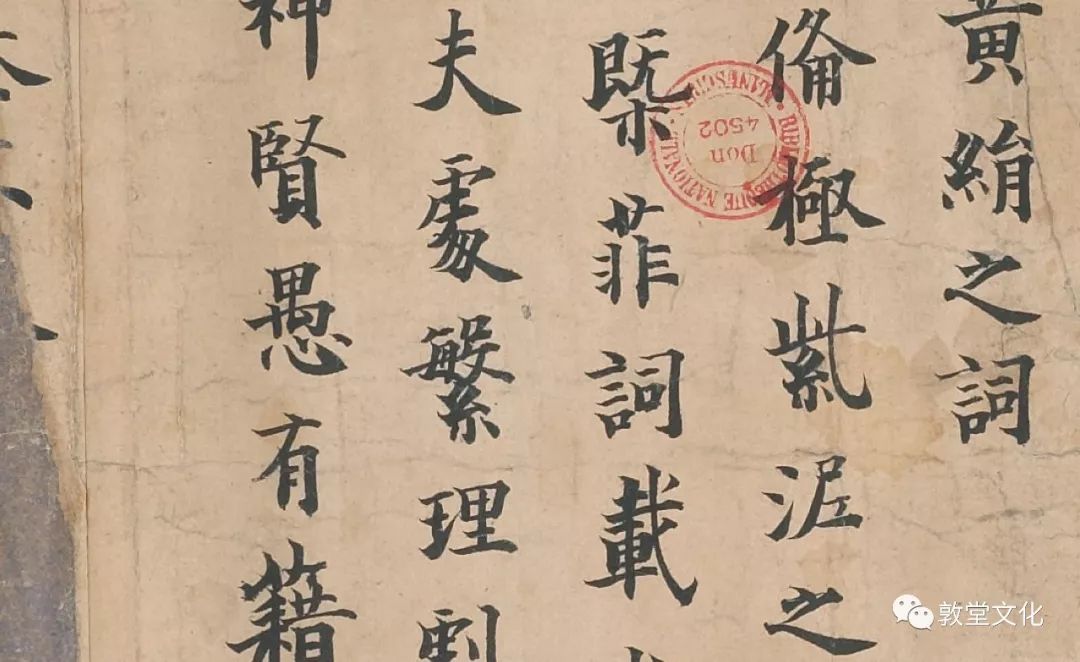 黄絹之詞
倫極紫泥之
槩菲詞載
夫處繁理劇
神賢愚有籍
BIBLIOTHEQUE NATIONALE MANUSCRITS
Don
4502
敦堂文化